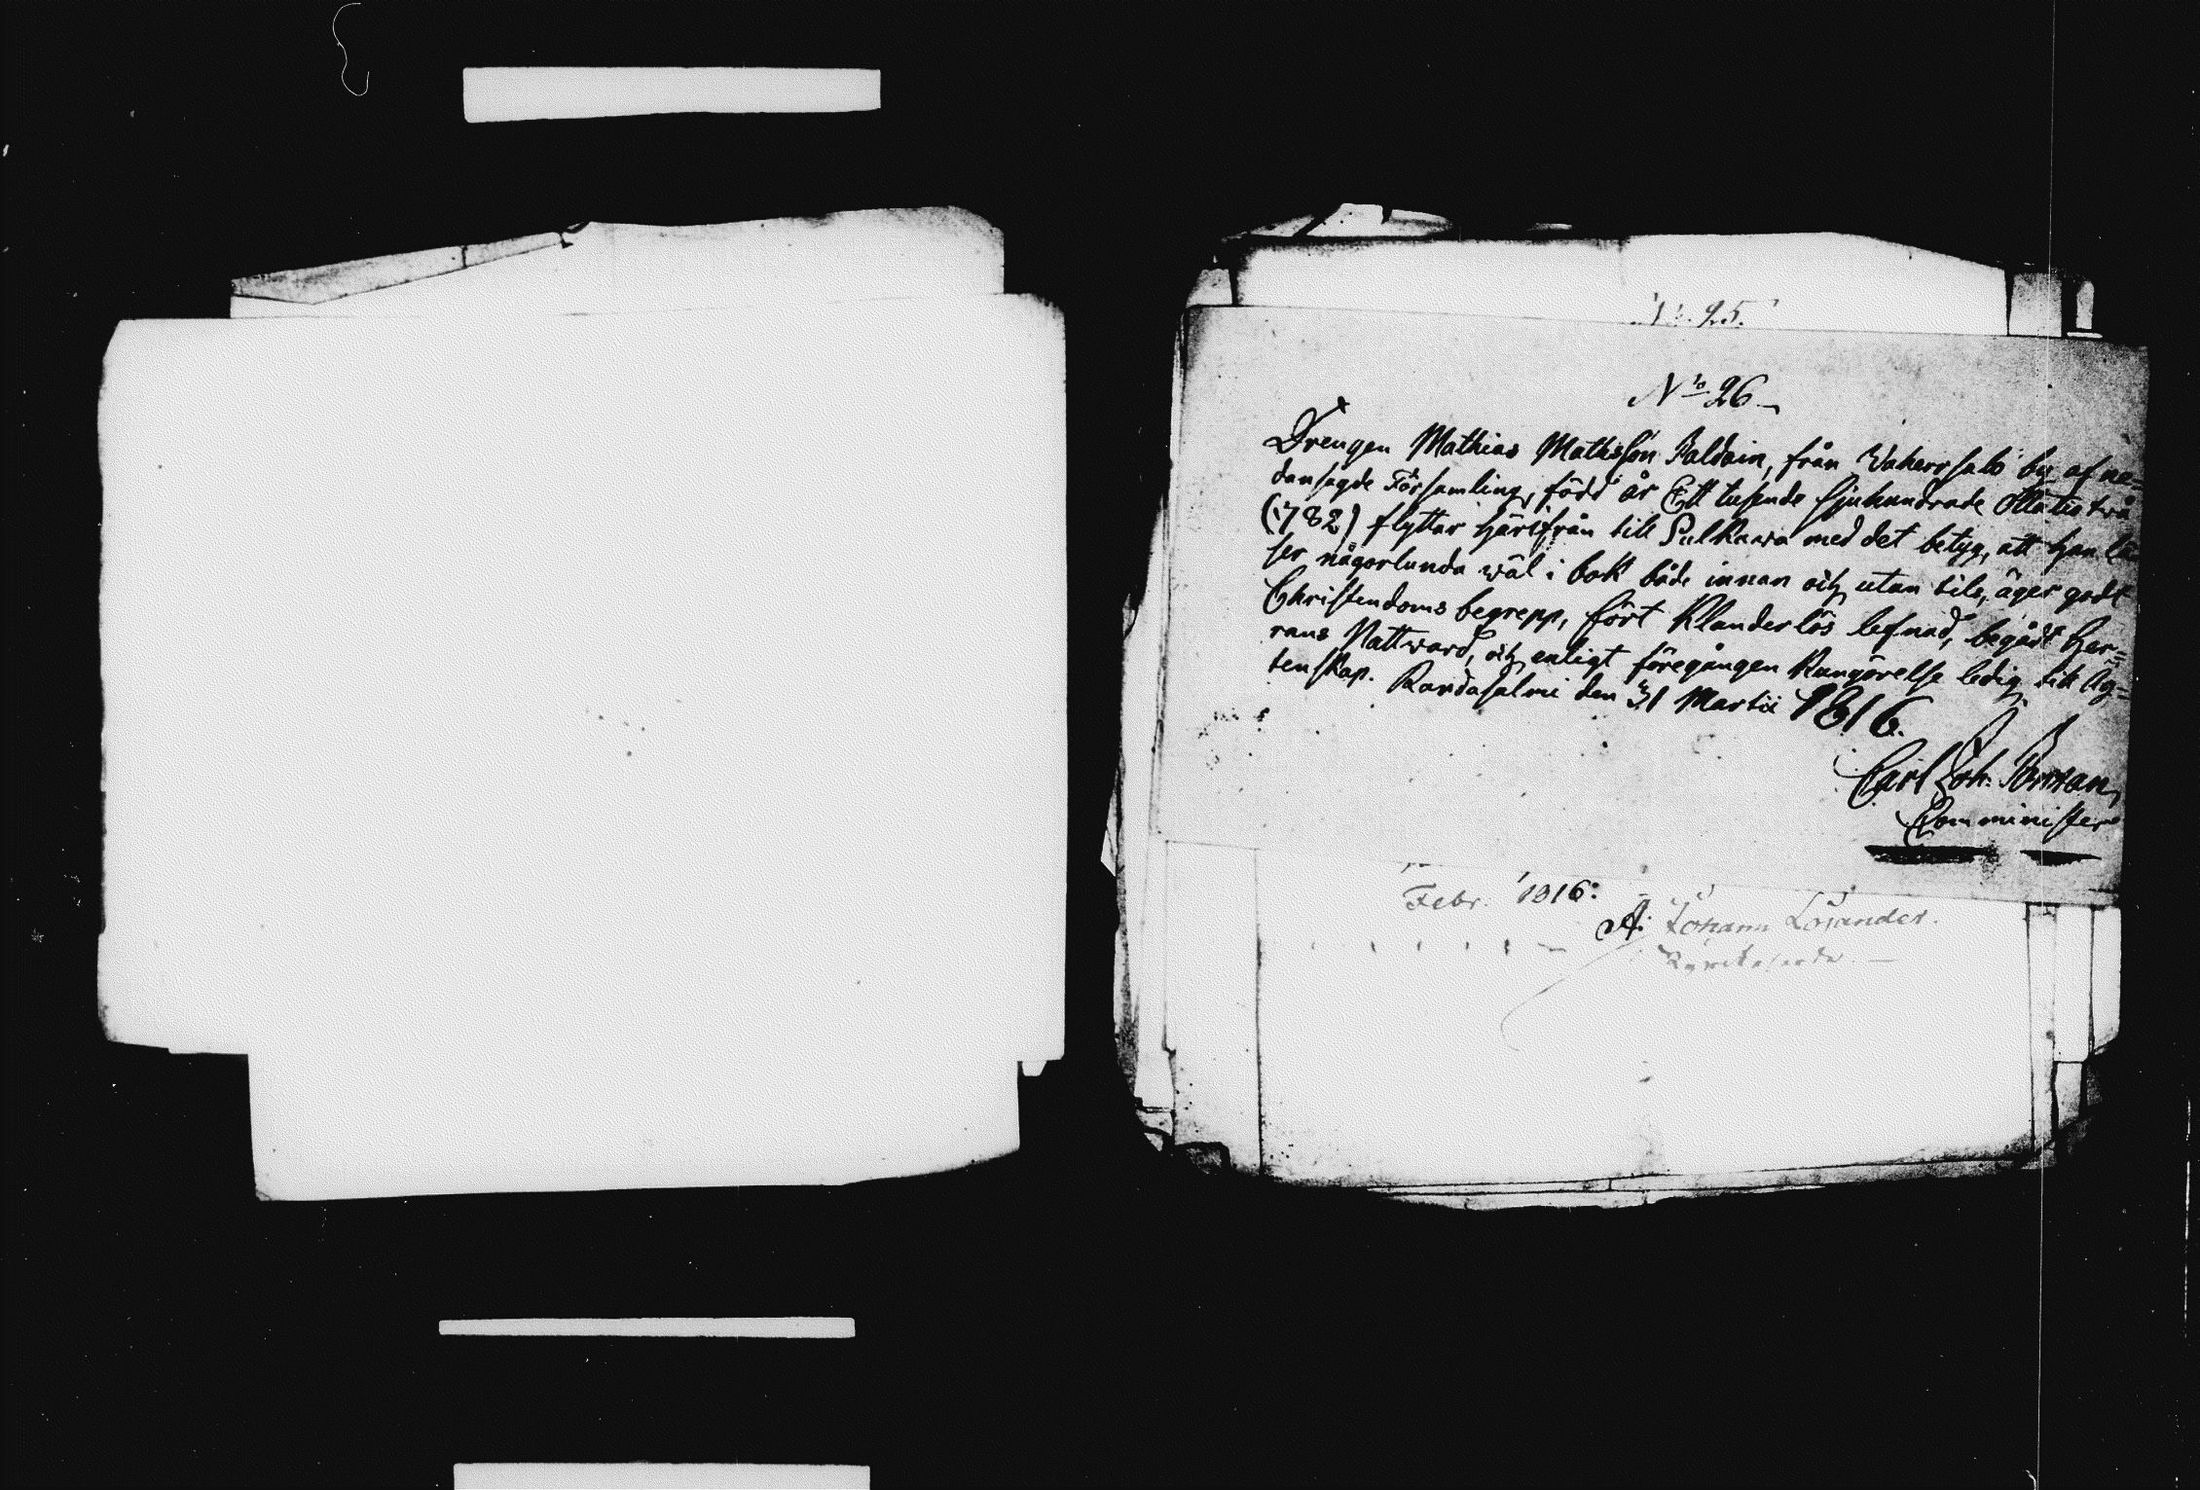 N:o 25.
N:o 26
Drengen Mathias Mathsson Paldain, från Wakersalo by af ne=
dansagde Församling, född år Ett tusende sjuhundrade Ottatiotvå
(1782) flyttar härifrån till Sulkava med det betyg, att han lä
ser någorlunda wäl i bok både innan och utan till, äger godt
Christendoms begrepp, fört Klanderlös lefnad, begådt Her=
rans Nattward, och enligt föregången Kungörelse ledig till Äg=
tenskap. Randasalmi den 31 Martii 1816.
Carl Joh.
Comminister
Febr. 1816:
A: Johann